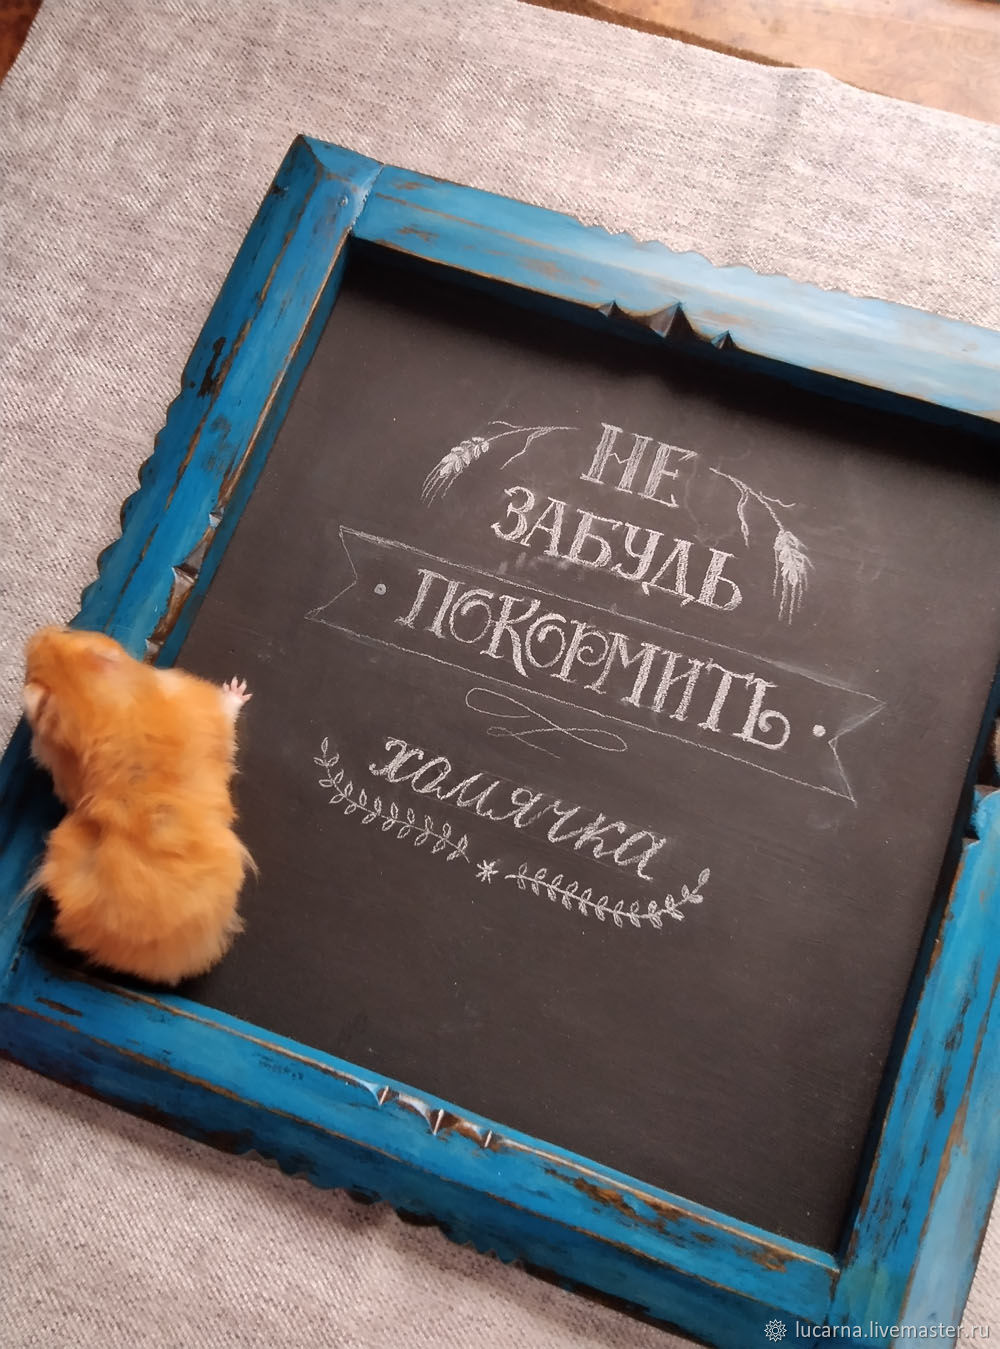 НЕ
ЗАБУДЬ
ПОКОРМИТЬ
хомячка
lucarna.livemaster.ru